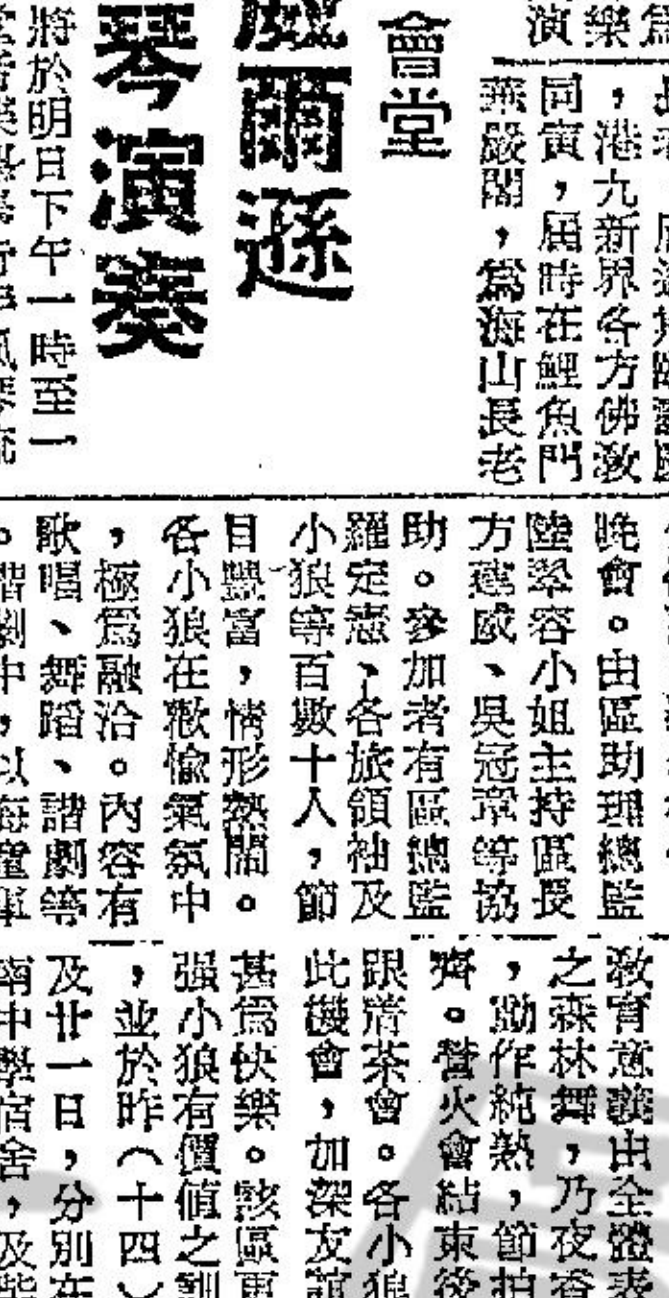 為
樂
演
，港九新界各方佛教
同寅，屆時在鯉魚門
華嚴閣，為海山長老
會堂
威爾遜
琴演奏
將於明日下午一時至一
晚會。由區助理總監
陸翠容小姐主持區長
方建威、吳冠璋等協
助。參加者有區總監
羅定憲、各旅領袖及
小狼等百數十人，節
目豐富，情形熱鬧。
各小狼在歡愉氣氛中
，極為融洽。內容有
歌唱、舞蹈、諧劇等
。諧劇中，以海童軍
教育意義由全體表
之森林舞，乃夜香
，動作純熟，節拍
齊。營火會結束後
跟着茶會。各小狼
此機會，加深友誼
甚為快樂。該區更
强小狼有價值之訓
，並於昨（十四）
及廿一日，分別在
南中學宿舍，及